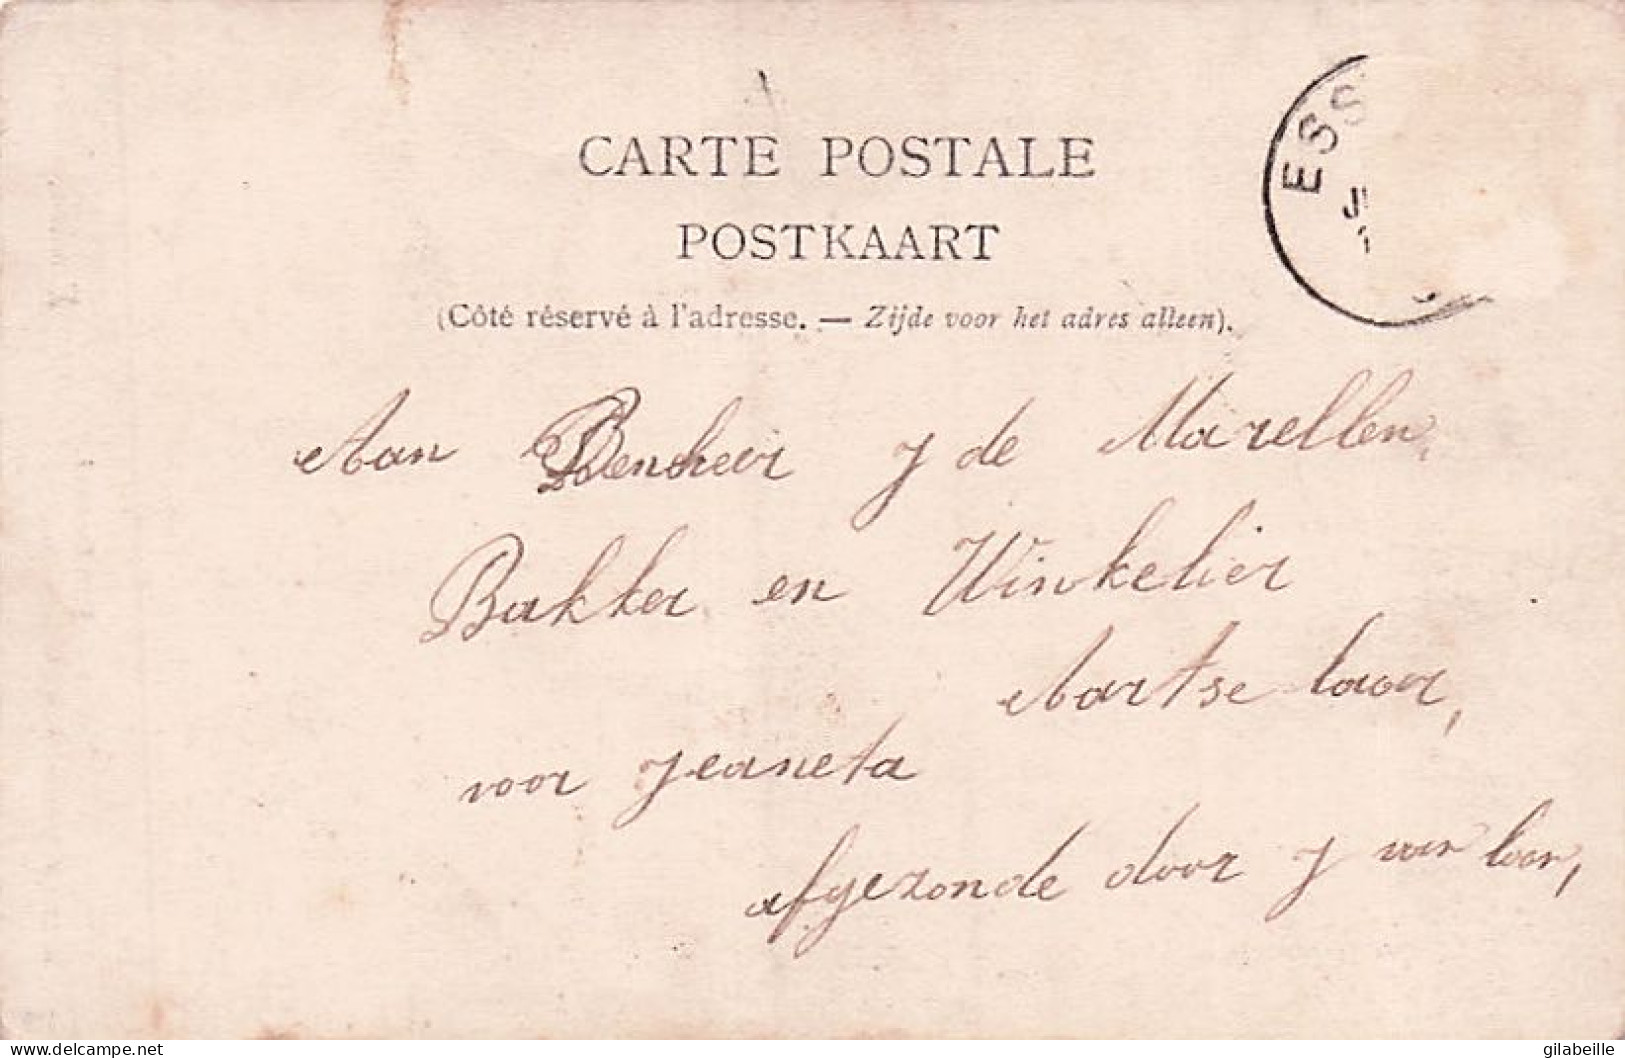 CARTE POSTALE
POSTKAART
(Côté réservé à l'adresse. — Zijde voor het adres alleen).
ESS
Aan Menheer J de Marellen,
Bakker en Winkelier
Aartselaer,
voor Jeaneta
afgezonde door J van loon,
delcampe.net
gilabeille